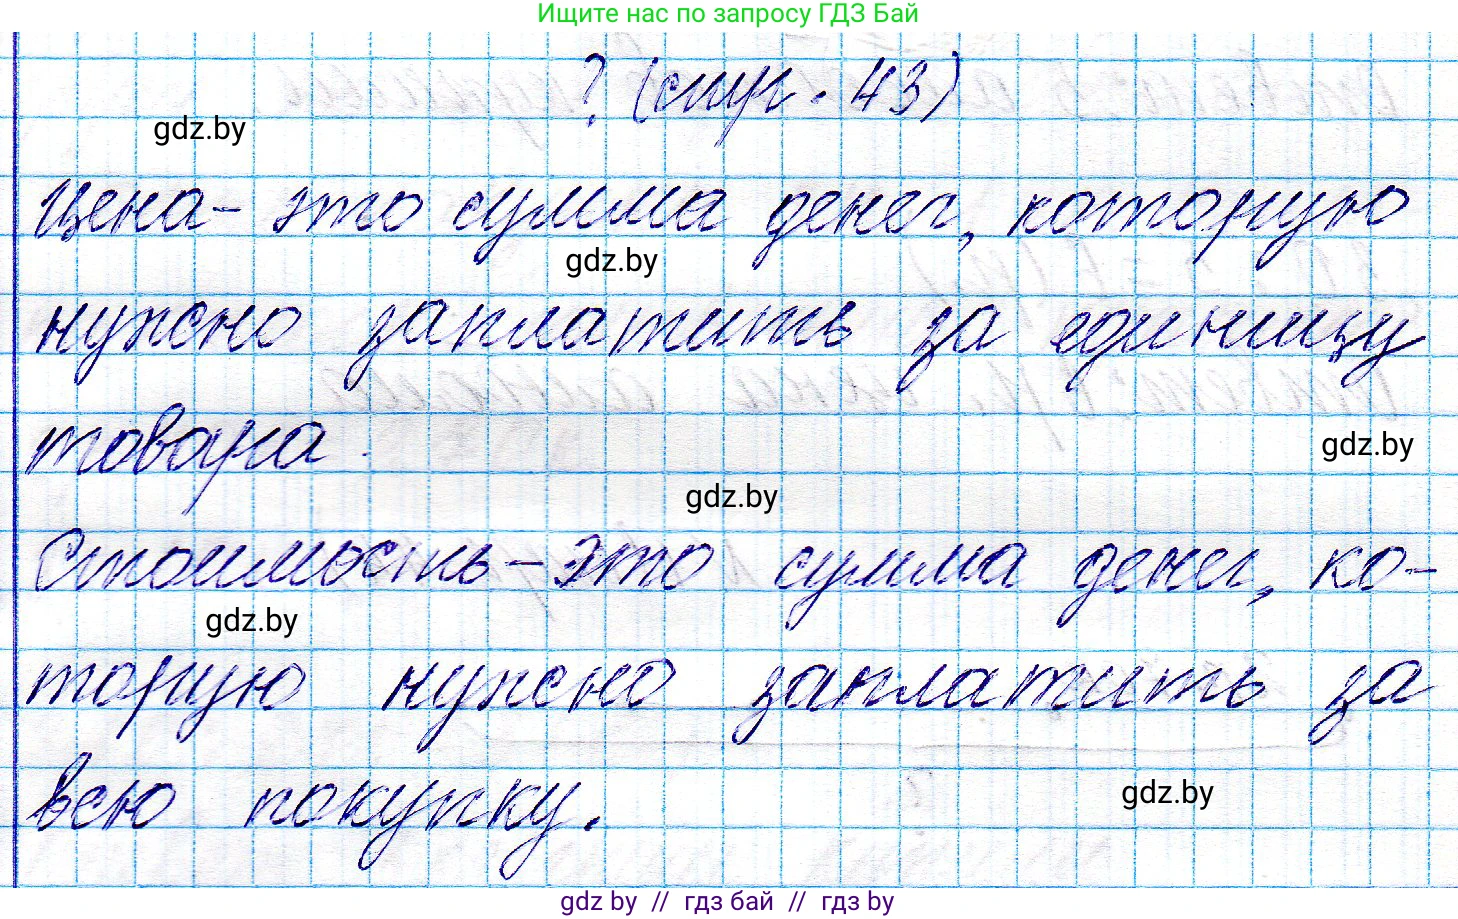 Ищите нас по запросу ГДЗ Бай
? (стр. 43)
gdz.by
Цена - это сумма денег, которую
gdz.by
нужно заплатить за единицу
товара.
gdz.by
gdz.by
Стоимость - это сумма денег, ко-
gdz.by
торую нужно заплатить за
всю покупку.
gdz.by
gdz by // гдз бай // гдз by